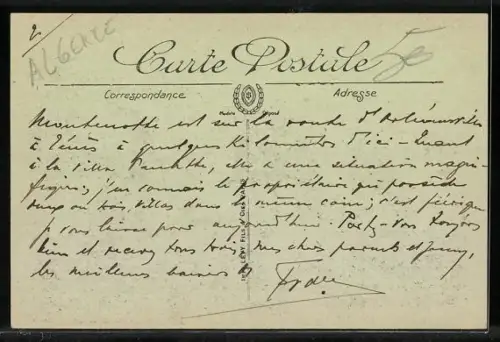 2
ALGERIE
50
Carte Postale
Correspondance
Adresse
Modèle Déposé
Montenotte est sur la route d'Orléansville
à Ténès à quelques kilomètres d'ici - Quant
à la villa elle a une situation magni-
fique; j'en connais le propriétaire qui possède
deux ou trois villas dans le même coin; c'est féerique
je vous laisse pour aujourd'hui Portez-vous toujours
bien et recevez tous trois, mes chers parents et
les meilleurs baisers de
IMP. LEVY FILS & CIE PARIS